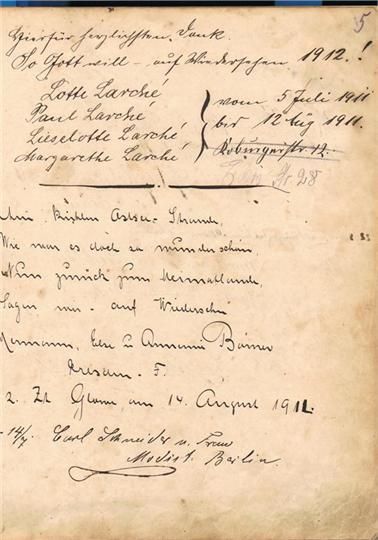 5
Hierfür herzlichsten Dank.
So Gott will – auf Wiedersehen 1912.!
Lotte Larché
Paul Larché
Lieselotte Larché
Margarethe Larché
vom 5 Juli 1911
bis 12 Aug 1911.
Koburgerstr. 12.
Nr. 28
kühlen Ostsee-Strande,
Wie war es doch so wunderschön,
Nun zurück zum Heimatlande,
Sagen wir – auf Wiedersehn
Hermann, Else u Annemie Börner
Dresden – F.
2. Zt Glowe am 14. August 1911.
- 14/7. Carl Schneider u. Frau
Modist. Berlin.